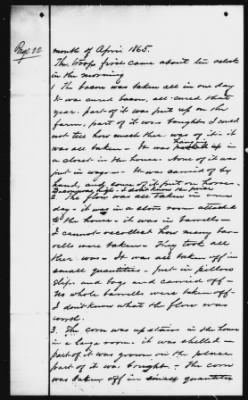 Page 22
month of April 1865.
The troops first came about ten oclock
in the morning
1 The bacon was taken all in one day
It was cured bacon, all cured that
year. part of it was put up on the
farm, part of it was bought I could
not tell how much there was of it; it
was all taken - It was hanging up in
a closet in the house. None of it was
put in wagons - It was carried off by
hand, and some of it put on horses.
2. The flour was all taken in
day - it was in a store room attached
to the house. it was in barrells -
I cannot recollect how many bar-
rells were taken - They took all
there was - It was all taken off in
small quantities, put in pillow
slips and bags and carried off -
No whole barrells were taken off
I don't know what the flour was
worth.
3. The corn was up stairs in the house
in a large room. it was shelled -
part of it was grown on the place
part of it was bought - The corn
was taken off in small quantities